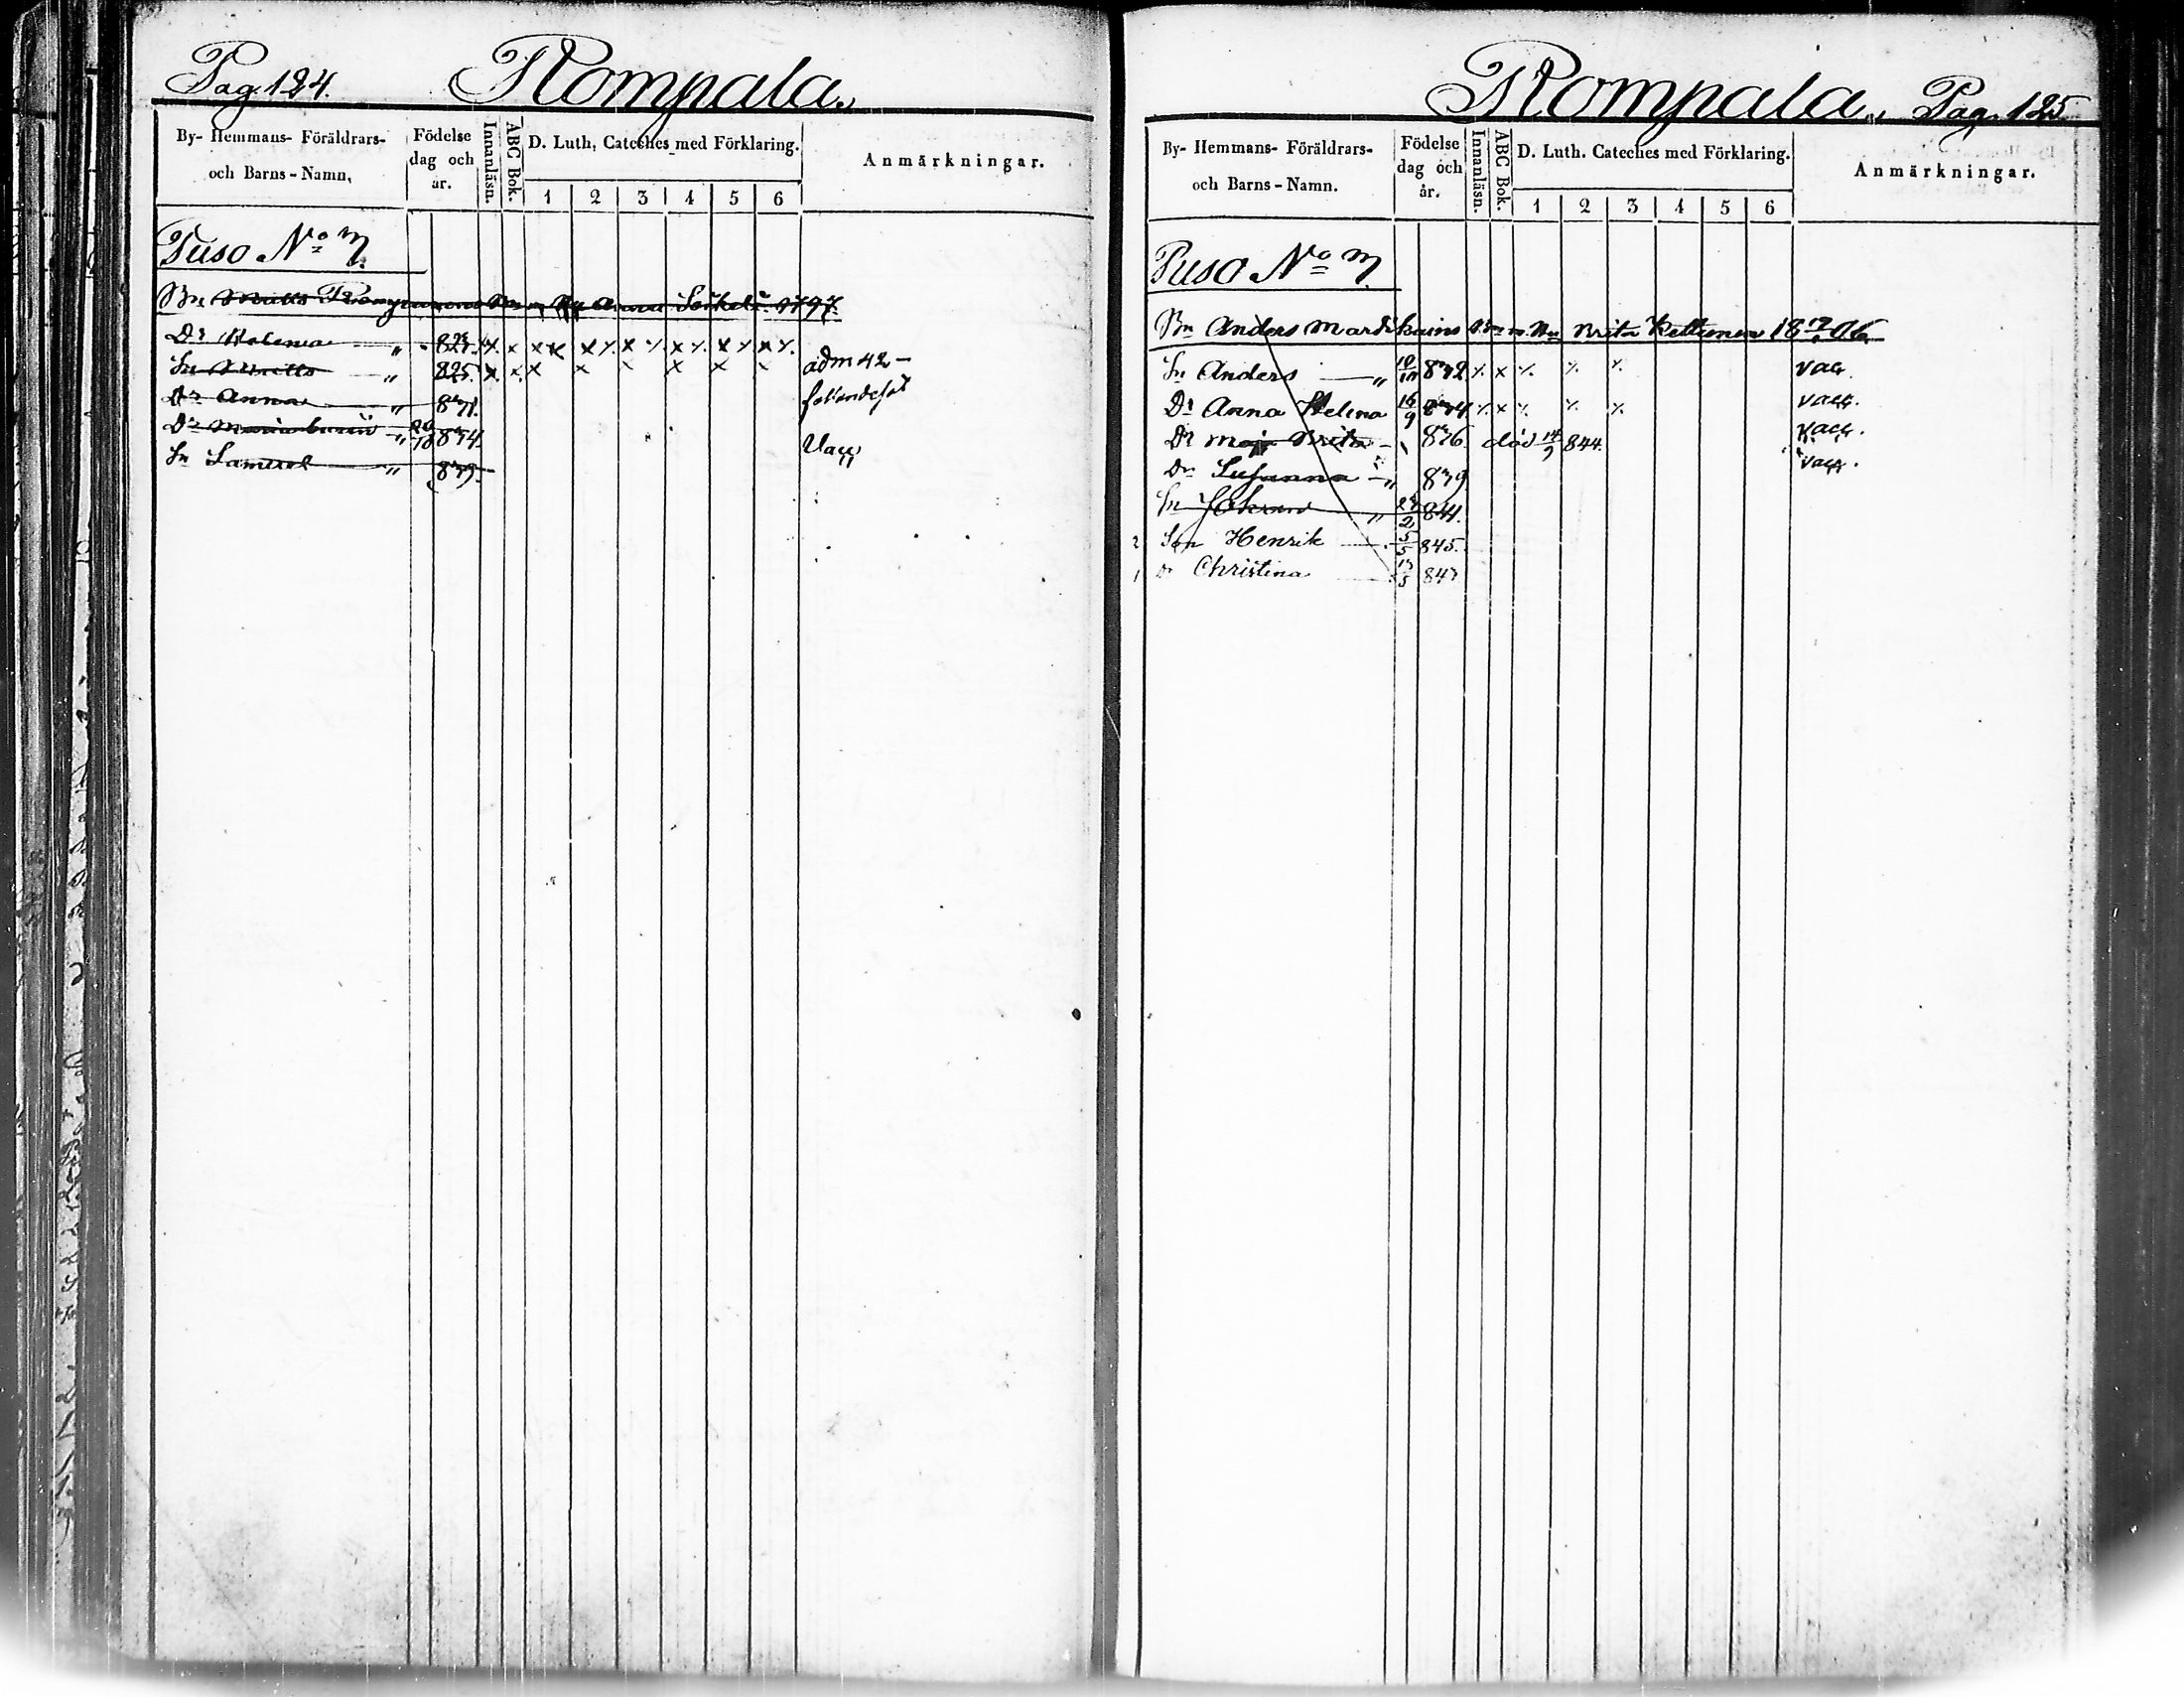 Pag. 124. Rompala.
By- Hemmans- Föräldrars- och Barns-Namn,
Födelse dag och år.
Innanläsn.
ABC Bok.
D. Luth, Cateches med Förklaring.
1 2 3 4 5 6
Anmärkningar.
Puso No 7.
Bn Matts Anna 1797.
Dr Helena " 823. x x x x x
Sn Matts " 825. x x x x x x x adm 42 –
Dr Anna " 831.
Dr Maria " 834.
Sn Samuel " 839. Vacc
Rompala. Pag. 125
By- Hemmans- Föräldrars- och Barns-Namn.
Födelse dag och år.
Innanläsn.
ABC Bok.
D. Luth. Cateches med Förklaring.
1 2 3 4 5 6
Anmärkningar.
Puso No 7.
Bn Anders Mardikains Brita Kettunen
Sn Anders " 832 vac.
Dr Anna Helena 16/9 834 vacc.
Dr Maja Brita 836 död 14/9 844. vacc.
Dr Susanna " 839 vacc.
Sn Johan " 841.
2 Son Henrik 5/5 845.
1 Dr Christina 847